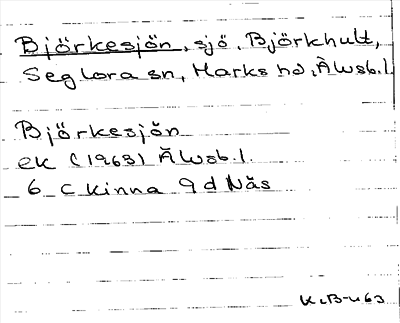 Björkesjön, sjö, Björkhult,
Seglora sn, Marks hd, Älvsb. l.
Björkesjön
ek (1963) Älvsb. l.
6 C Kinna 9 d Näs